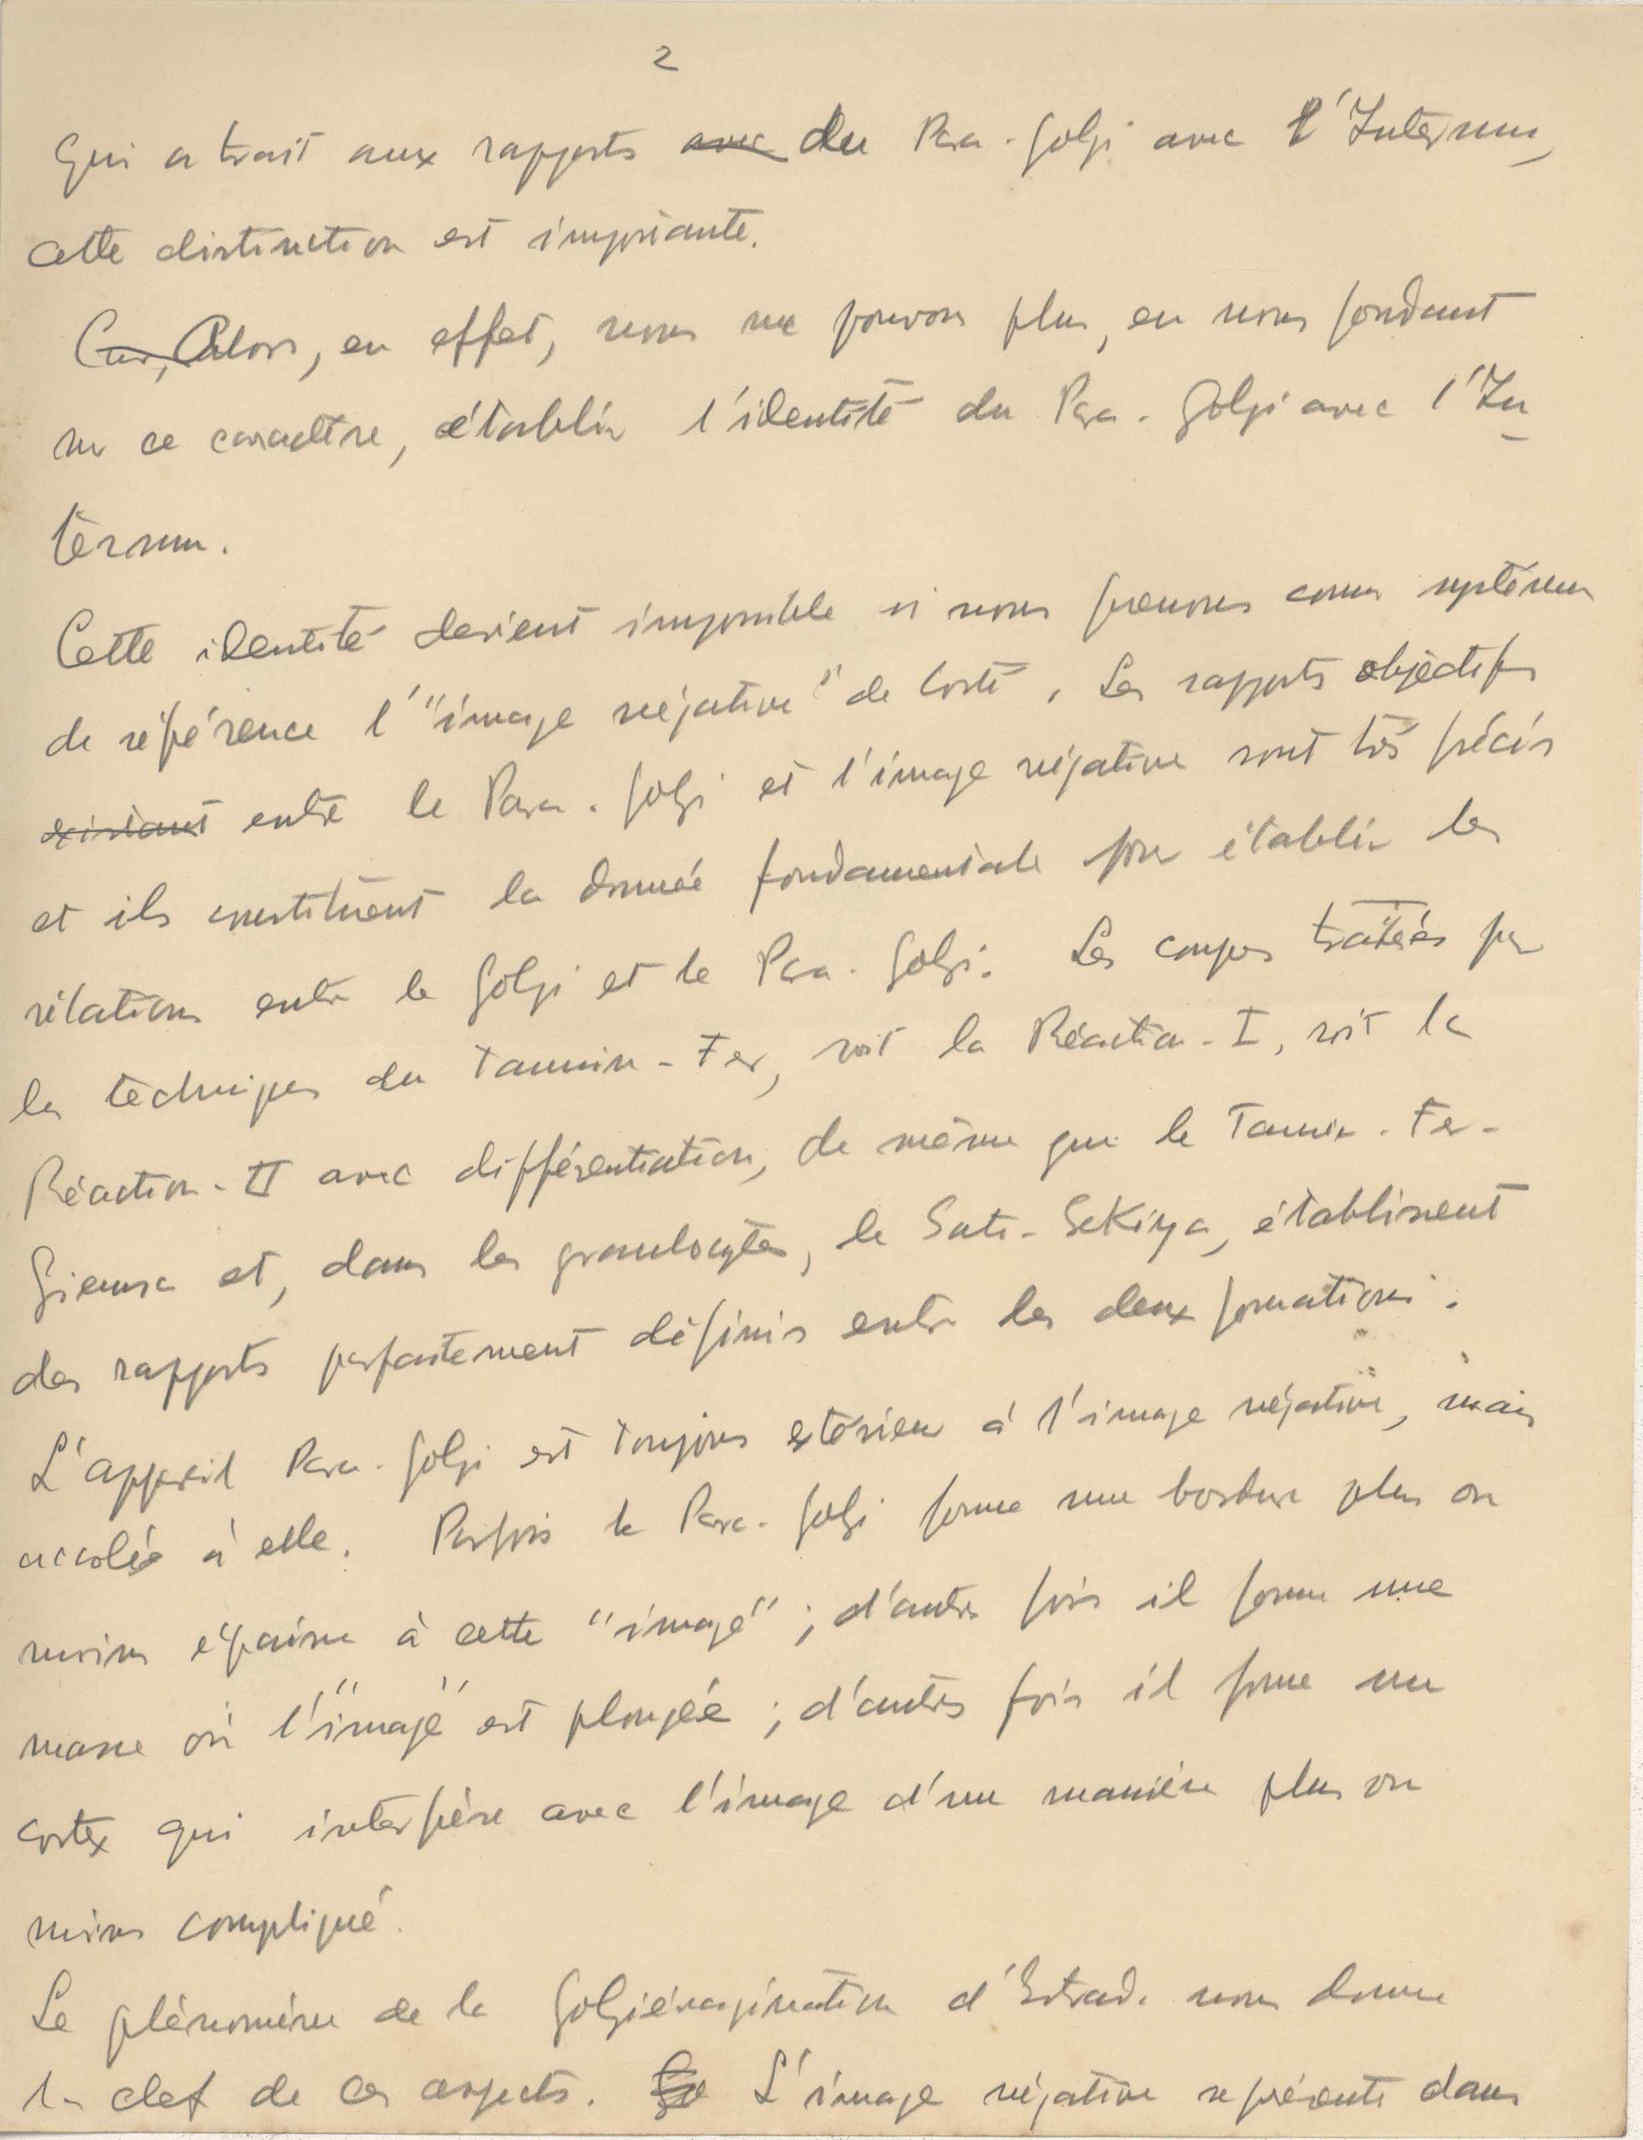 2
qui a trait aux rapports avec du Para-Golgi avec l'Internum,
cette distinction est importante.
Car, Alors, en effet, nous ne pouvons plus, en nous fondant
sur ce caractère, établir l'identité du Para-Golgi avec l'In-
ternum.
Cette identité devient impossible si nous prenons comme système
de référence l'"image négative" de Costé. Les rapports objectifs
existant entre le Para-Golgi et l'image négative sont très précis
et ils constituent la donnée fondamentale pour établir les
relations entre le Golgi et le Para-Golgi. Les coupes traitées par
les techniques du Tannin-Fer, soit la Réaction-I, soit la
Réaction-II avec différentiation, de même que le Tannin-Fer-
Giemsa et, dans les granulocytes, le Sato-Sekiya, établissent
des rapports parfaitement définis entre les deux formations.
L'appareil Para-Golgi est toujours extérieur à l'image négative, mais
accolée à elle. Parfois le Para-Golgi forme une bordure plus ou
moins épaisse à cette "image"; d'autres fois il forme une
masse où l'"image" est plongée; d'autres fois il forme un
cortex qui interfère avec l'image d'une manière plus ou
moins compliqué.
Le phénomène de la Golgiévagination d' nous donne
la clef de ces aspects. L'image négative représente dans